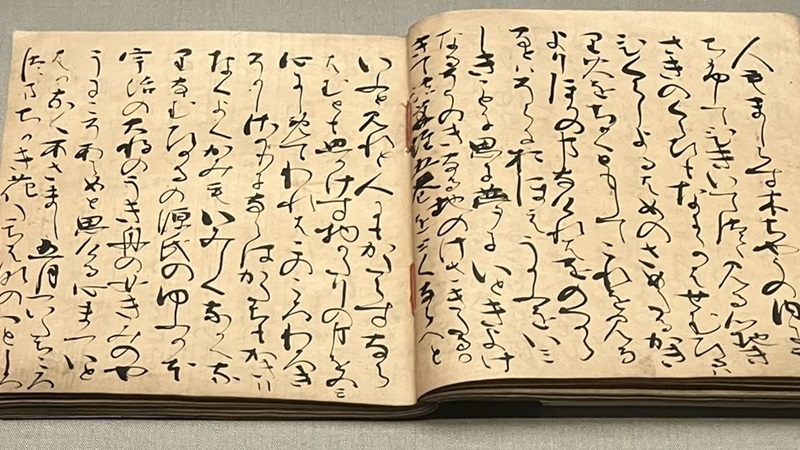 人もましらす木ちやうの内にう
ちふしてひきいてつゝ見る心地き
さきのくらひもなにゝかはせむひるは
ひくらしよるはめのさめたるかき
り火をちかくともしてこれを見る
よりほかの事なけれはをのつから
なとはそらにおほえうかふをいみ
しきことに思に夢にいときよけ
なるそうのきなる地のけさきたるか
きて法華経五巻をとくならへと
いふと見れと人にもかたらすなら
はむとも思かけす物かたりの事をのみ
心にしめてわれはこのころわろき
そかしさかりにならはかたちもかきり
なくよくかみもいみしくなかくな
りなむひかるの源氏のゆふかほ
宇治の大将のうき舟の女きみのや
うにこそあらめと思ける心まついと
はかなくあさまし五月ついたちころ
つまちかき花たちはなのいとしろ